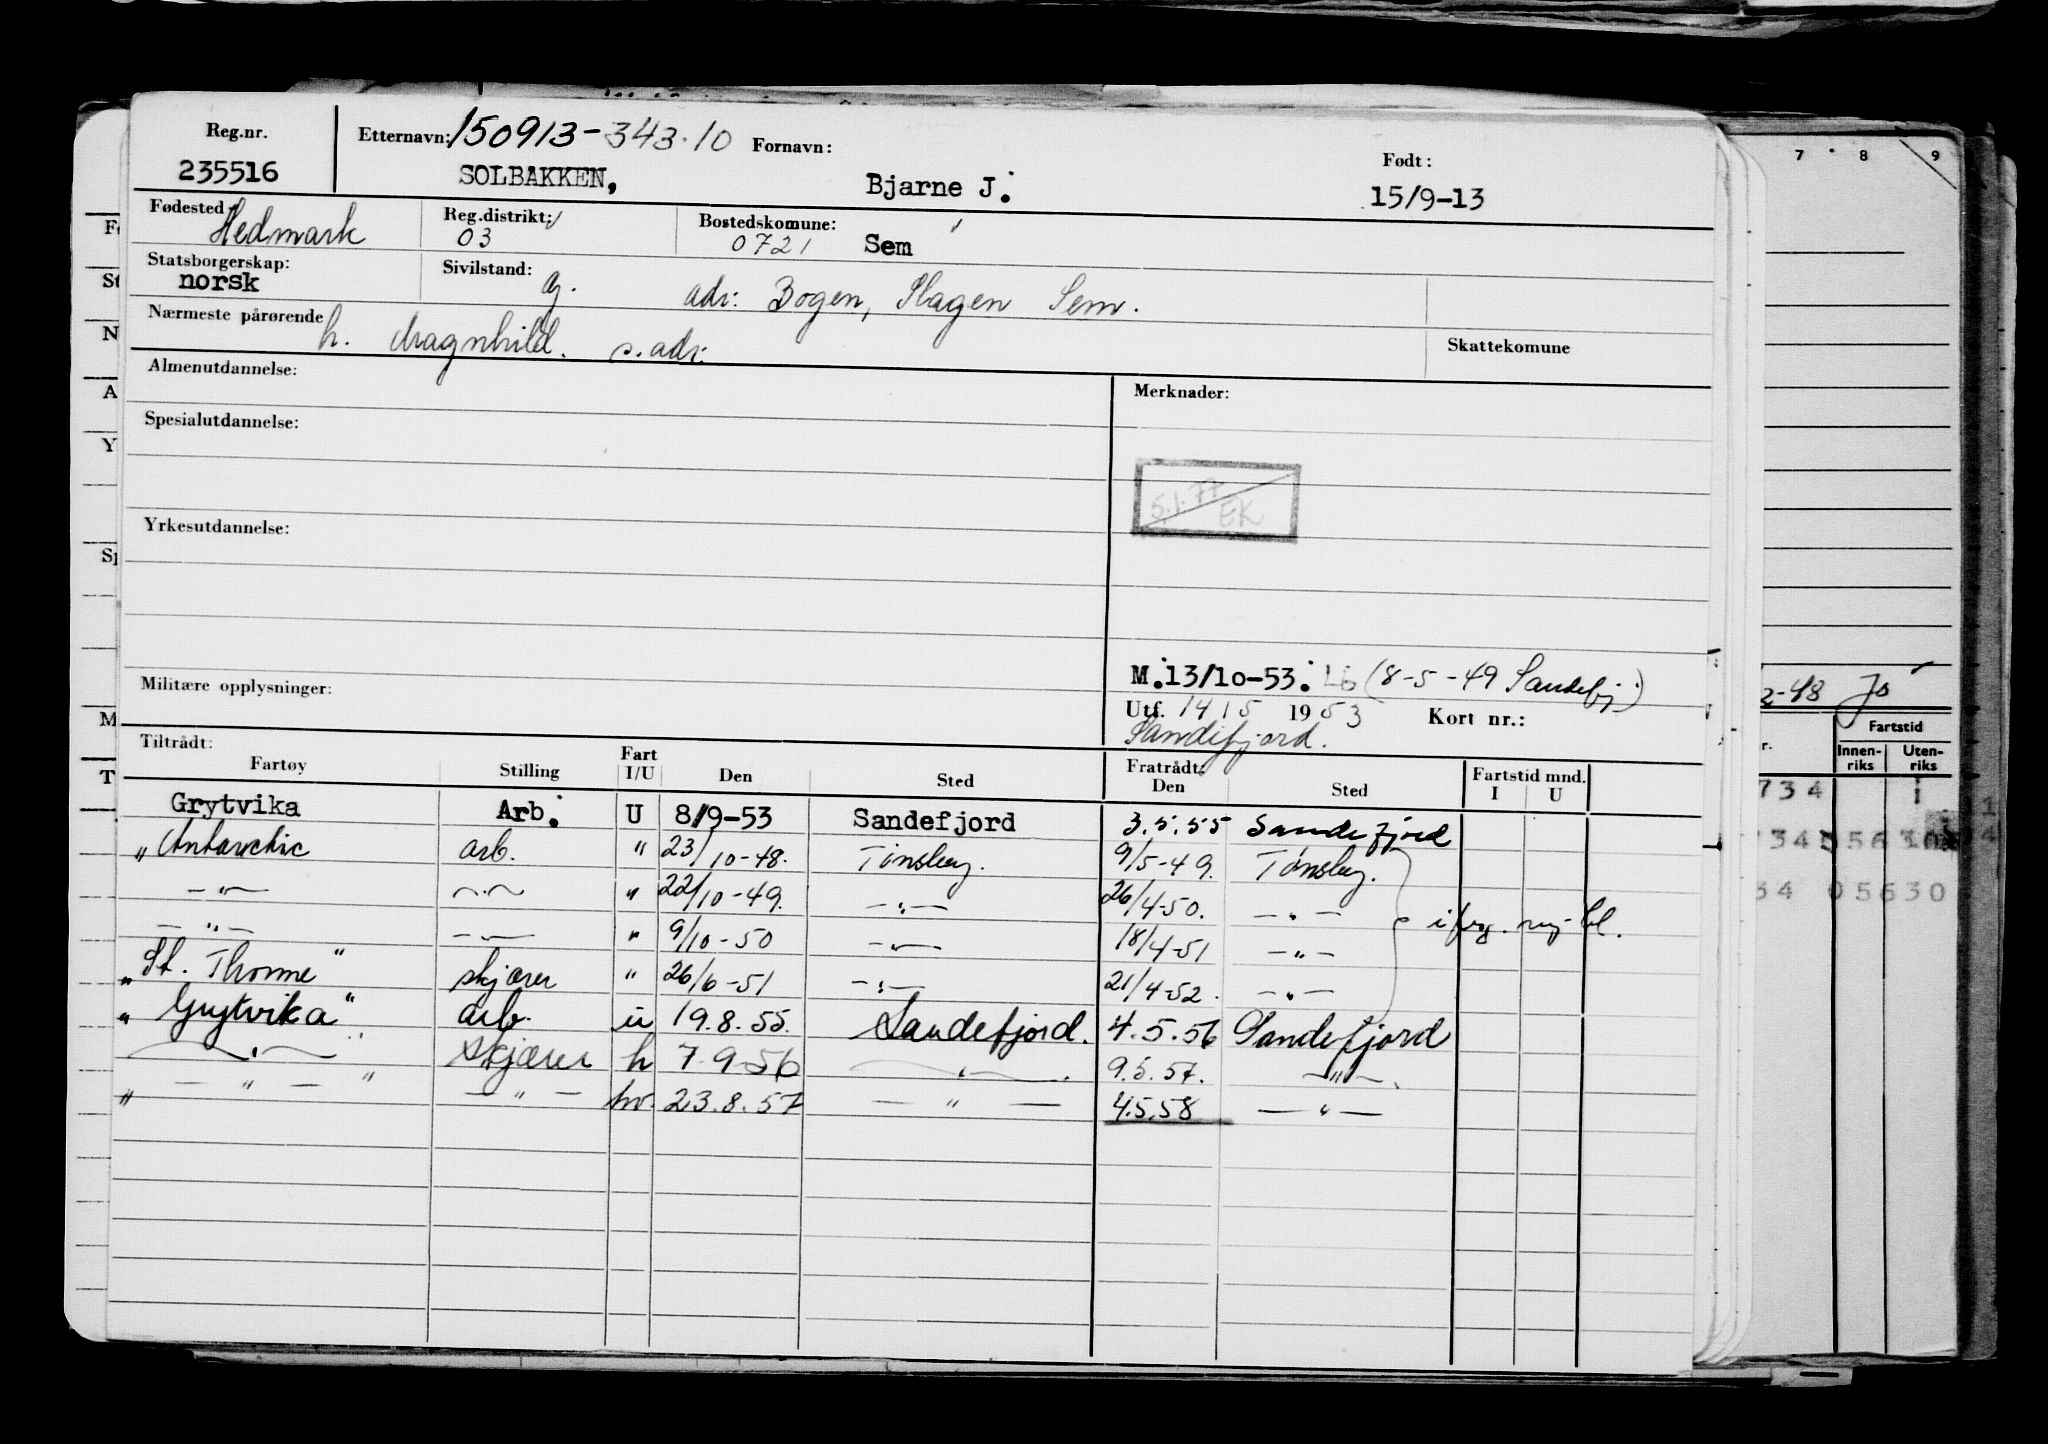 Reg.nr. Etternavn: 150913-343.10 Fornavn: Født:
235516 SOLBAKKEN, Bjarne J. 15/9-13
Fødested Hedmark Reg.distrikt: 03 Bostedskomune: 0721 Sem
Statsborgerskap: norsk Sivilstand: g. adr: Bogen, Slagen Sem.
Nærmeste pårørende h. Magnhild. s. adr. Skattekomune
Almenutdannelse: Merknader:
Spesialutdannelse:
5.1.77 EK
Yrkesutdannelse:
M.13/10-53. L6 (8-5-49 Sandefj.)
Militære opplysninger: Utf. 14/5 1953 Kort nr.:
Sandefjord.
Tiltrådt: Fratrådt:
Fartøy Stilling Fart I/U Den Sted Den Sted Fartstid mnd. I U
Grytvika Arb. U 8/9-53 Sandefjord 3.5.55 Sandefjord
" Antarctic arb. " 23/10-48. Tønsberg. 9/5-49. Tønsberg.
— " — — " — " 22/10-49. — " — 26/4-50. — " —
— " — — " — " 9/10-50 — " — 18/4-51 — " —
" St. Thorme" skjærer " 26/6-51 — " — 21/4-52. — " —
" Grytvika" arb. u 19.8.55. Sandefjord. 4.5.56 Sandefjord
— " — skjærer h 7.9.56 — " — 9.5.57. — " —
" — " — " — " — hv. 23.8.57 — " — 4.5.58 — " —
7 8 9
2-48 Jo
Fartstid
Innenriks Utenriks
734 1
34 05630